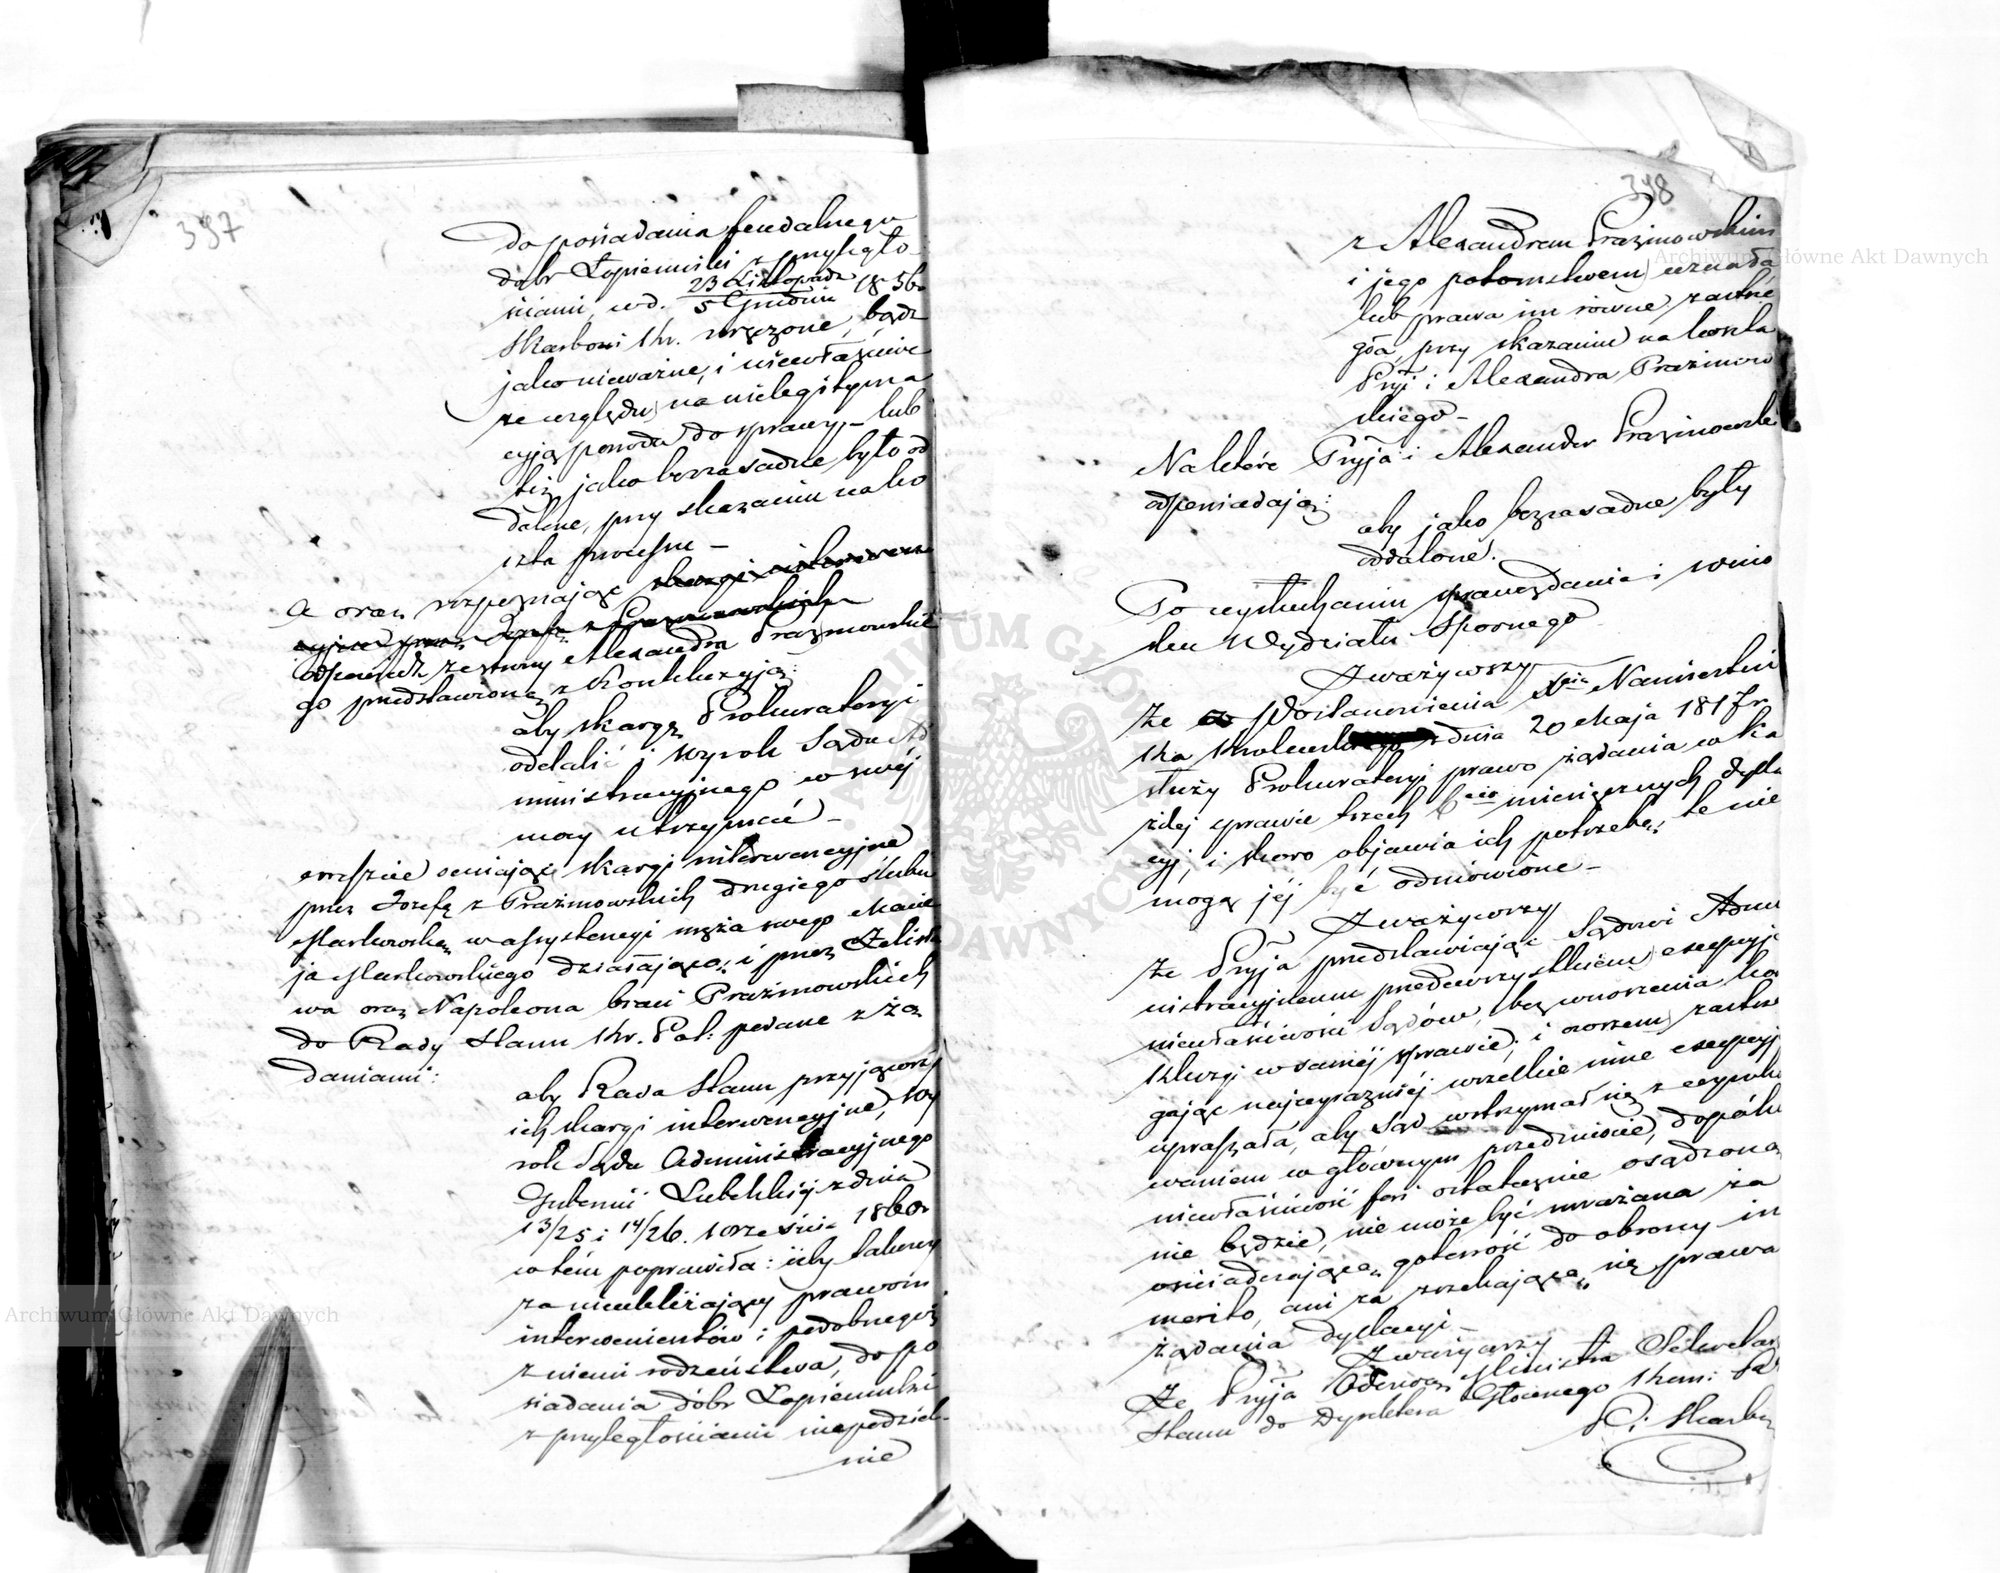 397
do posiadania feudalnego
dóbr Łopiennik z przyległo-
ściami, w d. 23 Listopada / 5 Grudnia 1856
Skarbowi Kr. wręczone, bądź
jako nieważne, i niewłaściwe
ze względu na nielegityma
cyją powoda do sprawy, – lub
też jako bezzasadne było od
dalone, przy skazaniu na ko
szta processu –
A oraz rozpoznając skargi interwen
cyjne przez Józefę z Prazmowskich
odpowiedź ze strony Alexandra Prażmowskie
go przedstawioną z konkluzyją:
aby skargę Prokuratoryi
oddalić i wyrok Sądu Ad
ministracyjnego w swej
mocy utrzymać –
wreszcie oceniając skargi interwencyjne
przez Józefę z Prażmowskich drugiego ślubu
Markowską w assystencyi męża swego
Markowskiego działającą, i przez
oraz Napoleona braci Prażmowskich
do Rady Stanu Kr. Pol: podane z żą
daniami:
aby Rada Stanu przyjąwszy
ich skargi interwencyjne, wy
rok Sądu Administracyjnego
Gubernii Lubelskiej z dnia
13/25 i 14/26. Września 1860r
w tém poprawiła: iżby takowy
za nieubliżający prawom
interwenientów i podobnegoż
z niemi rodzeństwa, do po
siadania dóbr Łopiennik
z przyległościami niepodziel-
nie
398
z Alexandrem Prażmowskim
i jego potomstwem uznała
lub prawa im równe zastrze
gła, przy skazaniu na koszta
Pryi i Alexandra Prażmow
skiego –
Na które Pryja i Alexander Prażmowski
odpowiadają:
aby jako bezzasadne były
oddalone.
Po wysłuchaniu sprawozdania i wnio
sku Wydziału Spornego
Zważywszy
że Postanowienia Xcia Namiestni
ka Królewskiego z dnia 20 Maja 1817 r.
służy Prokuratoryi prawo żądania w ka
żdej sprawie trzech 6cio miesięcznych dyla
cyj, i skoro objawia ich potrzebę, te nie
mogą jéj być odmówione –
Zważywszy
że Pryja przedstawiając Sądowi Admi
nistracyjnemu przedewszystkiém excepcyję
niewłaściwości Sądów, bez wnoszenia kon
kluzyi w saméj sprawie, i owszem zastrze
gając najwyraźniéj wszelkie inne excepcyje
upraszała, aby Sąd wstrzymał się z wyroko
waniem w głównym przedmiocie, dopóki
niewłaściwość fori ostatecznie osądzoną
nie będzie, nie może być uważana za
oświadczającą gotowość do obrony in
merito, ani za zrzekającą się prawa
żądania dylacyi –
Zważywszy
że Pryja Odezwą Ministra Sekretarza
Stanu do Dyrektora Głównego Komi:
P. i Skarbu